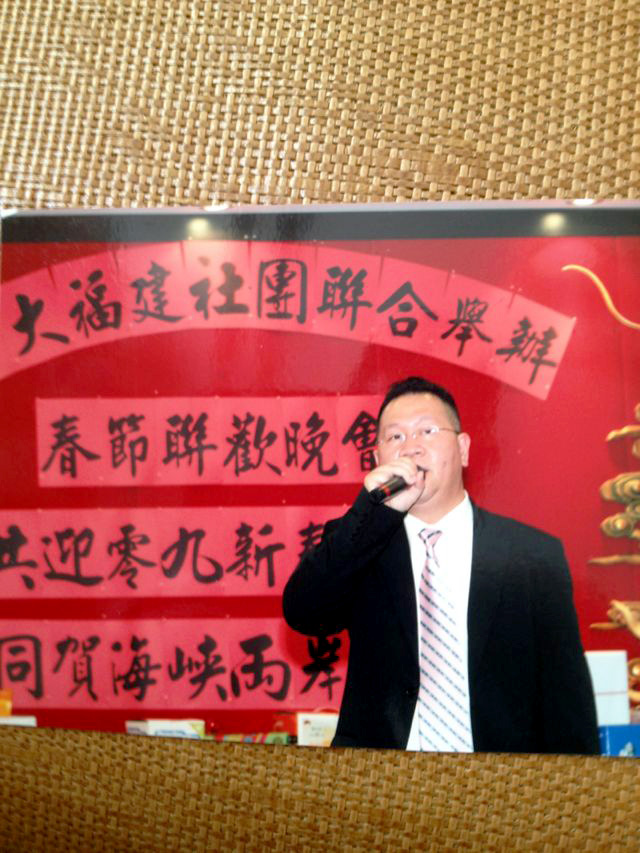 大福建社團聯合舉辦
春節聯歡晚會
共迎零九新春
同賀海峽兩岸